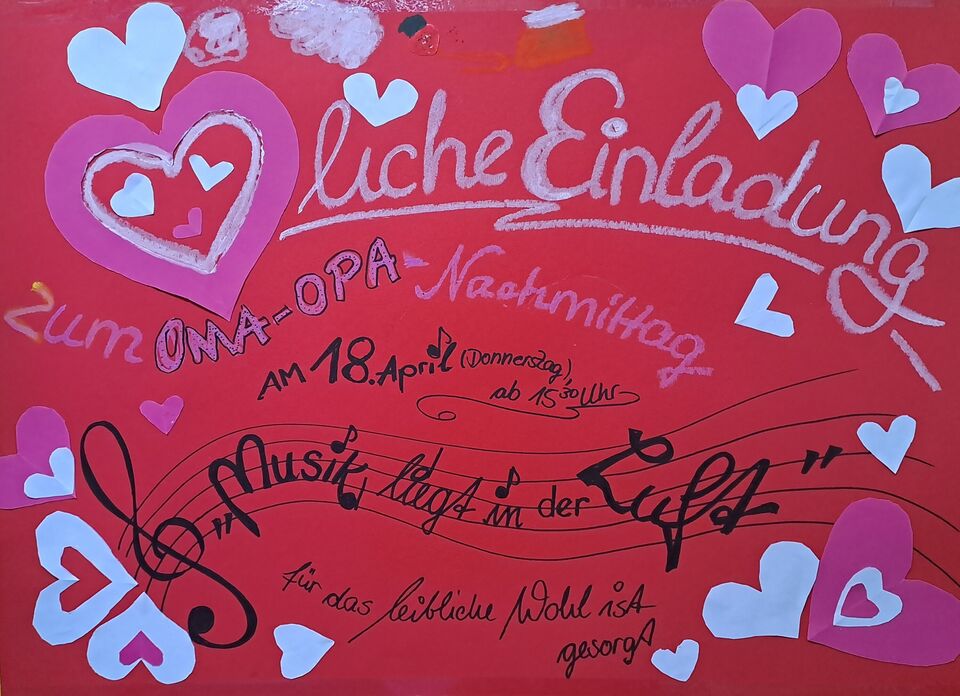 liche Einladung
zum OMA-OPA-Nachmittag
AM 18. April (Donnerstag),
ab 15³⁰ Uhr
„Musik liegt in der Luft"
für das leibliche Wohl ist
gesorgt